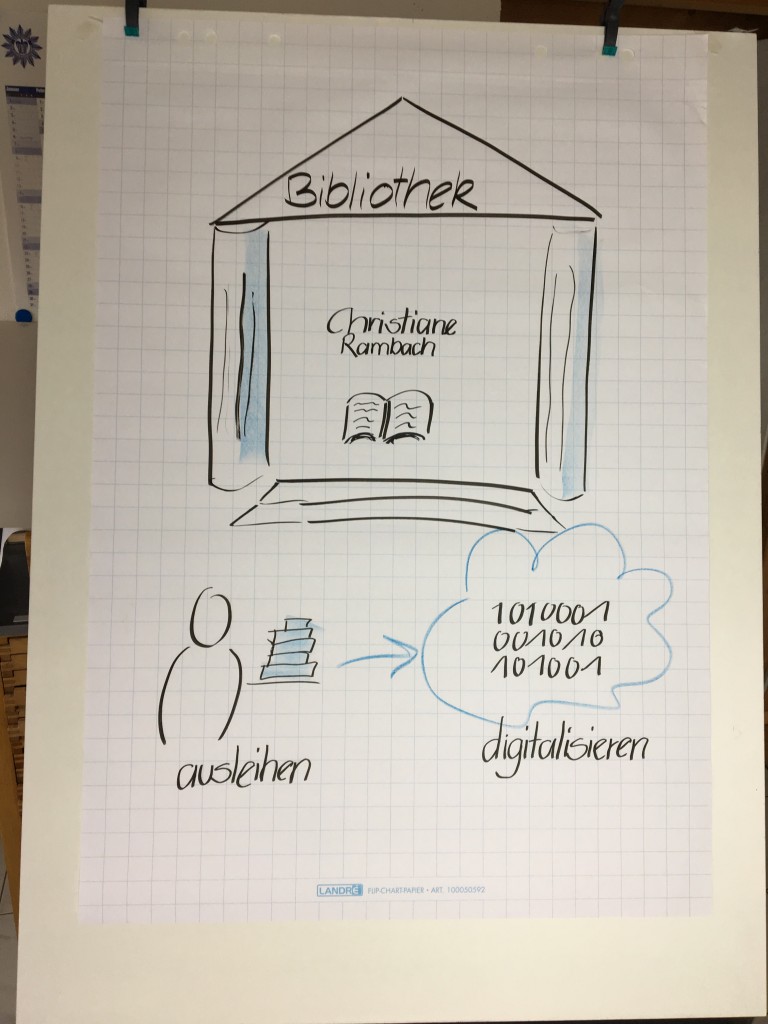 Bibliothek
Christiane
Rambach
1010001
001010
101001
ausleihen
digitalisieren
LANDRÉ FLIP-CHART-PAPIER • ART. 100050592